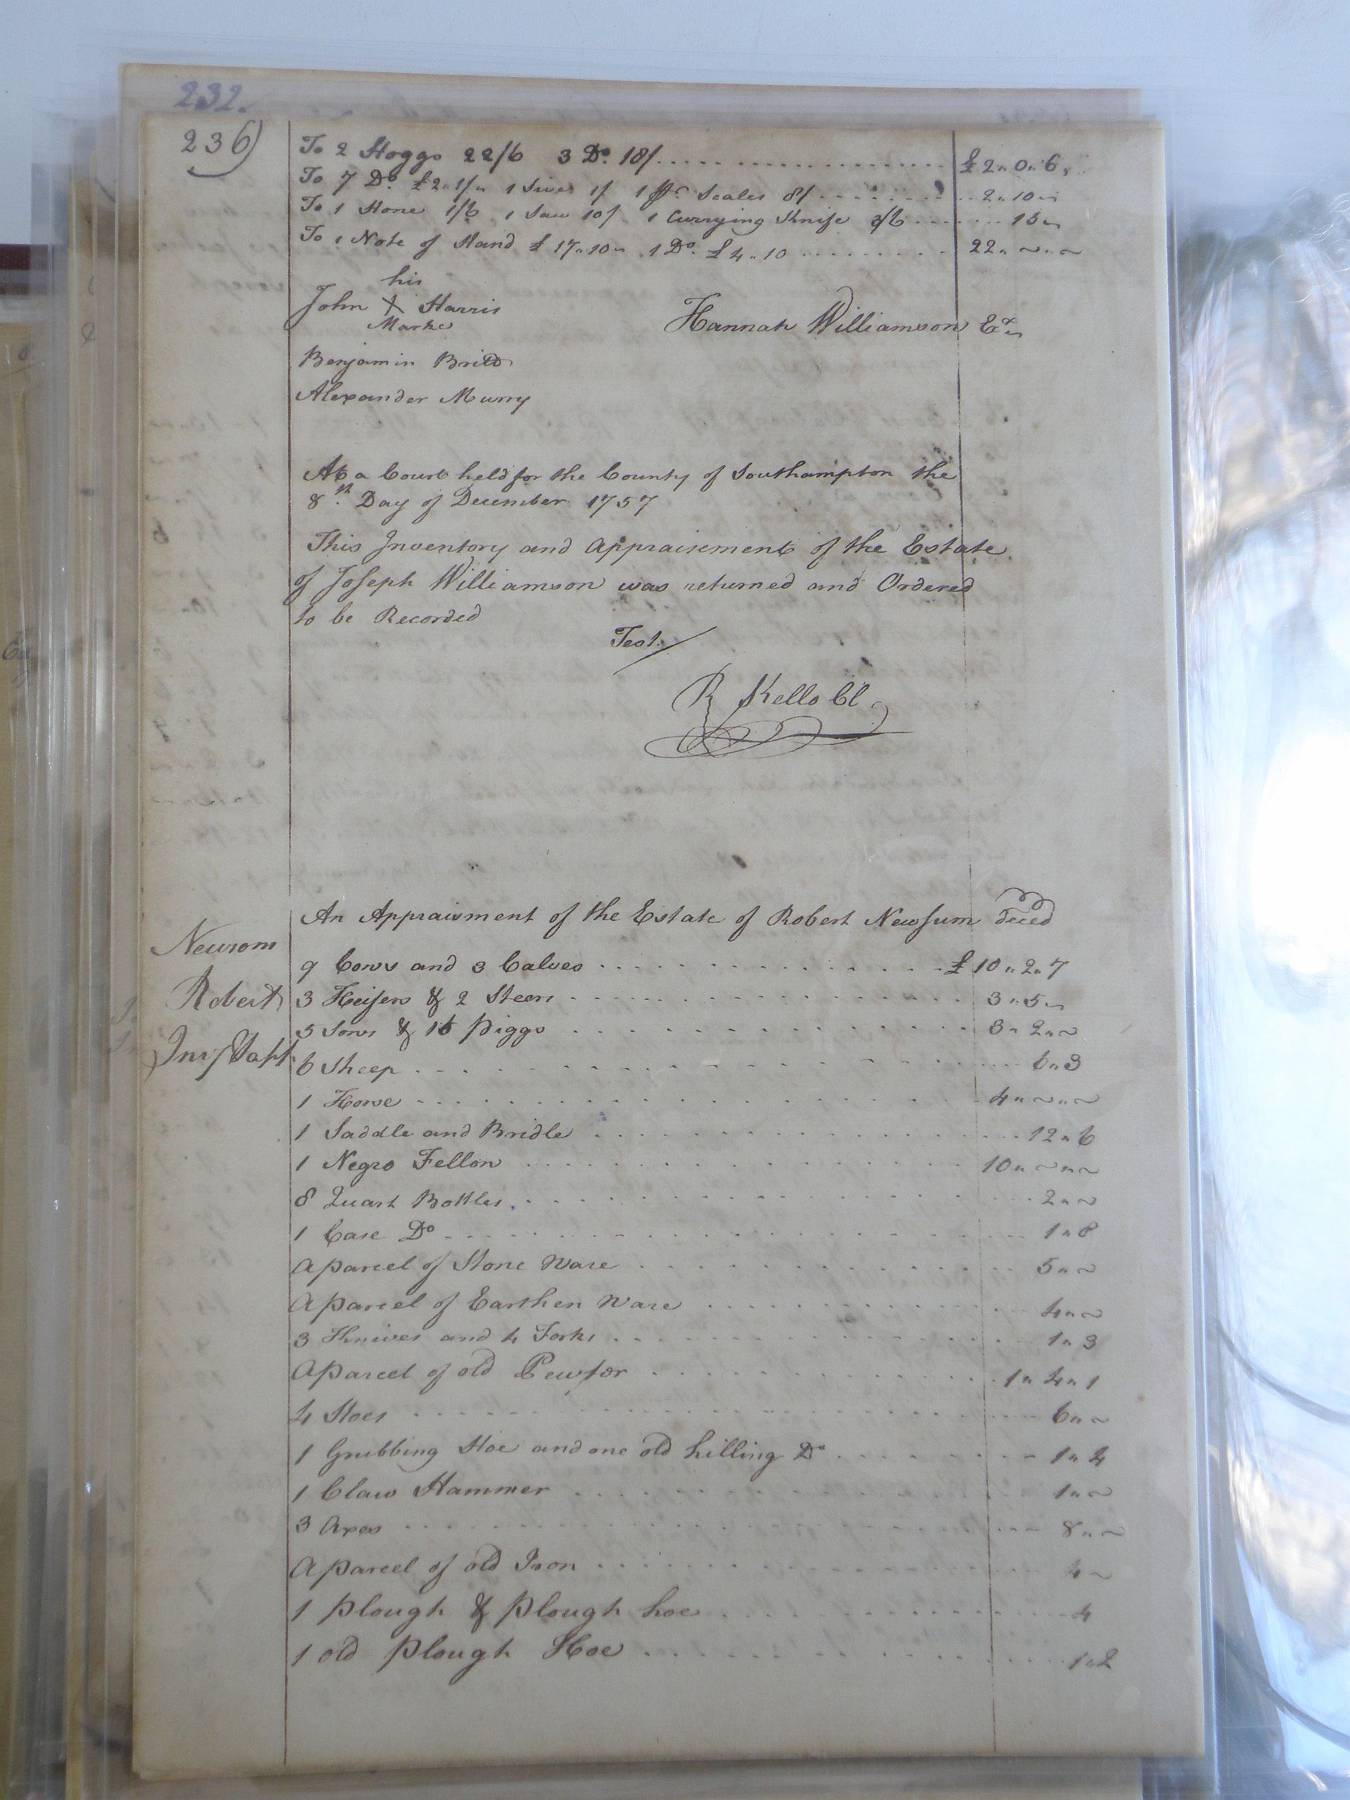 232.
236)
To 2 Hoggs 22/6 3 Do. 18/ £2" 0" 6
To 7 Do. £2"1/" 1 Sive 1/ 1 pr Scales 8/ 2"10"
To 1 Hone 1/6 1 Saw 10/ 1 Currying Knife 3/6 15"
To 1 Note of Hand £17"10" 1 Do. £4"10 22"~"~
his
John X Harris
Marke
Hannah Williamson Ex
Benjamin Britt
Alexander Murry
At a Court held for the County of Southampton the
8th Day of December 1757
This Inventory and Appraisement of the Estate
of Joseph Williamson was returned and Ordered
to be Recorded
Test.
R Kello Cl
An Appraisment of the Estate of Robert Newsum deced
Newsom
Robert
9 Cows and 3 Calves £10"2"7
3 Heifers & 2 Steers 3"5"
5 Sows & 16 Piggs 3"2"~
6 Sheep 6"3
1 Horse 4"~"~
1 Saddle and Bridle 12"6
1 Negro Fellow 10"~"~
8 Quart Bottles 2"~
1 Case Do 1"8
A parcel of Stone Ware 5"~
A Parcel of Earthen Ware 4"~
3 Knives and 4 Forks 1"3
A Parcel of old Pewter 1"4"1
4 Hoes 6"~
1 Grubbing Hoe and one old hilling Do 1"4
1 Claw Hammer 1"~
3 Axes 8"~
A Parcel of old Iron 4~
1 Plough & Plough hoe 4
1 old Plough Hoe 1"2